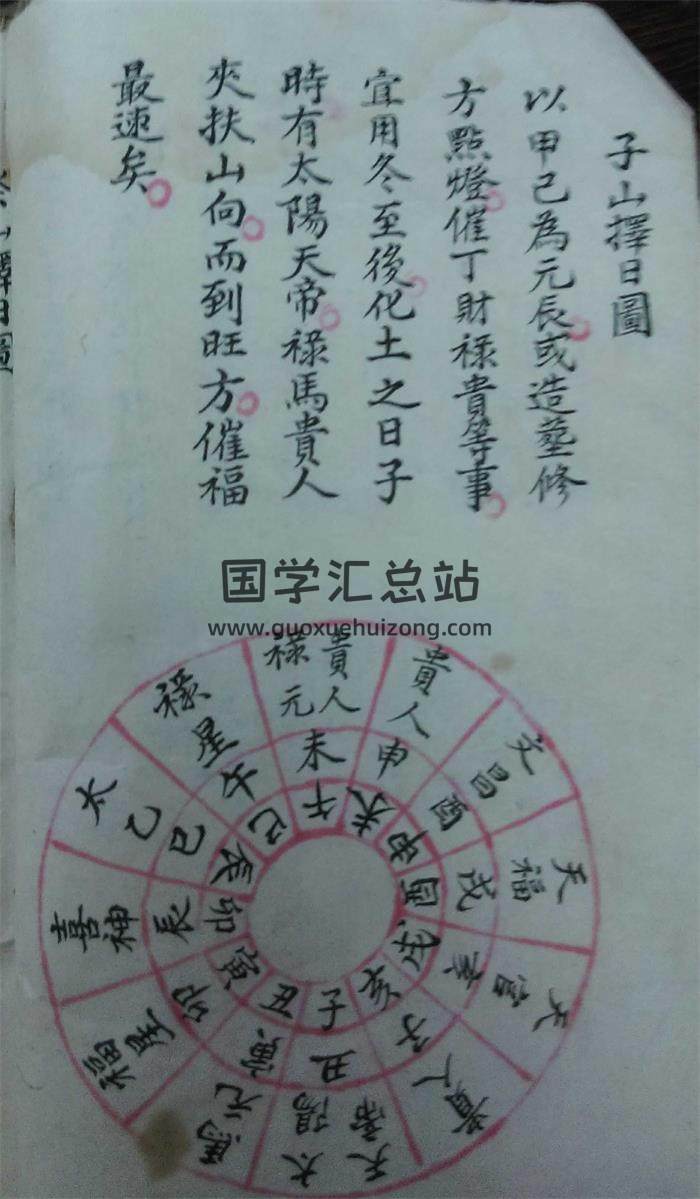 子山擇日圖
以甲己為元辰或造塟修
方點燈催丁財祿貴等事
宜用冬至後化土之日子
時有太陽天帝祿馬貴人
夾扶山向而到旺方催福
最速矣
国学汇总站
www.guoxuehuizong.com
祿元 貴人
貴人
文昌
天福
天官
貴人
天帝 太陽
馬元
福星
喜神
太乙
祿星
未
申
酉
戌
亥
子
丑
寅
卯
辰
巳
午
午
未
申
酉
戌
亥
子
丑
寅
卯
辰
巳
山擇日圖